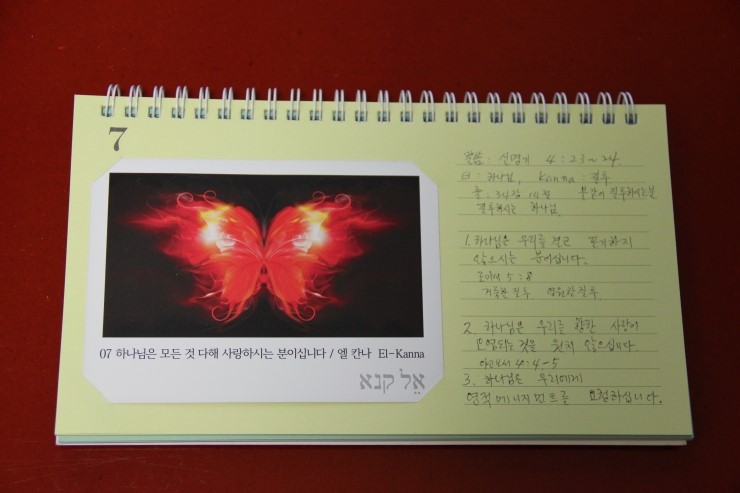 7
07 하나님은 모든 것 다해 사랑하시는 분이십니다 / 엘 칸나 El-Kanna
אֵל קנא
말씀: 신명기 4:23~24
El: 하나님, Kanna: 질투
출: 34장 14절
질투하시는 하나님.
1. 하나님은 우리를 결코 포기하지
않으시는 분이십니다.
로마서 5:8
거룩한 질투 영원한 질투
2. 하나님은 우리를 향한 사랑이
오염되는 것을 원치 않으십니다.
야고보서 4:4-5
3. 하나님은 우리에게
영적 매니지먼트를 요청하십니다.